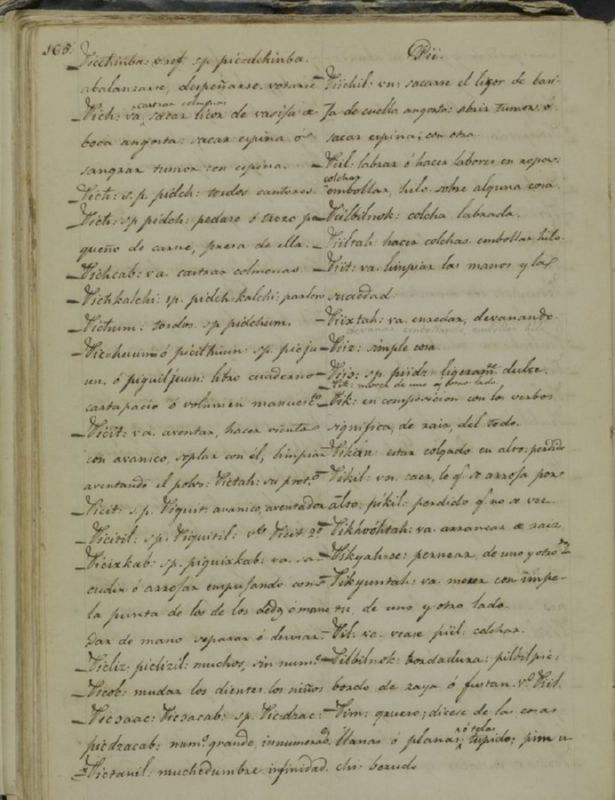 165.
Picchinba: v. ref. sp. picdchinba.
abalanzarse, despeñarse.
Pich: va. castrar colmenas
sacar licor de vasija de
boca angosta: sacar espina ó
sangrar tumor con espina.
Pich: s. p. pidch: tordos cantores.
Pich: sp pidch: pedazo ó trozo pe
queño de carne, presa de ella.
Pichcab: va. castrar colmenas
Pichkalchi: sp. pidch-kalchi; parlon
Pichum: tordos. sp. pidchum.
ó sp. picju
un. ó piquiljuun: libro cuaderno
cartapacio ó volumen manuscto.
Picit: va. aventar, hacer viento
con avanico, soplar con él; limpiar
aventando el polvo: Pictah: su pret.
Picit: s. p. Piquit: avanico, aventador
Picitil: sp. Piquitil: vº Picit 2º
Picixkab: sp. piquixkab: va. sa-
cudir ó arrojar empujando con
la punta de los de los dedos ó mano
dar de mano separar ó desviar
Picliz piclizil: muchos, sin numº
Picob: mudar los dientes los niños
Picsaac: Picsacab: sp. Picdzac:
picdzacab: numº grande, innumerad.
Pictanil: muchedumbre infinidad.
Pii.
Piichil: vn: sacarse el licor de basi-
ja de cuello angosto: abrir tumor ó
sacar espina; con otra
Piil: labrar ó hacer labores en ropa:
colchar
embollar, hilo sobre alguna cosa.
Piilbilnok: colcha labrada.
Piiltah: hacer colchas. embollar hilo.
Piit: va. limpiar las manos y la
suciedad
Piixtah: va. enredar, devanando.
Piiz: simple cosa
sp. ligeramte dulce.
Pik: mover de uno y otro lado
Pik: en composicion con los verbos
significa, de raiz, del todo.
Pikán: estar colgado en alto: perdido
Pikil: vn. caer, lo q. se arroja por
alto: pikil: perdido q. no se vee
va: arrancar de raiz
Pikyah-oc: pernear, de uno y otro
Pikyuntah: va. mecer con impe-
tu, de uno y otro lado.
Pil: va. vease piil. colchar.
Pilbilnok: bordadura: pilbil pic:
bordo de saya ó fustan. vº Piil.
Pim: grueso; dicese de las cosas
llanas ó planas; ó telas
tupido; pim u-
chi: bezudo